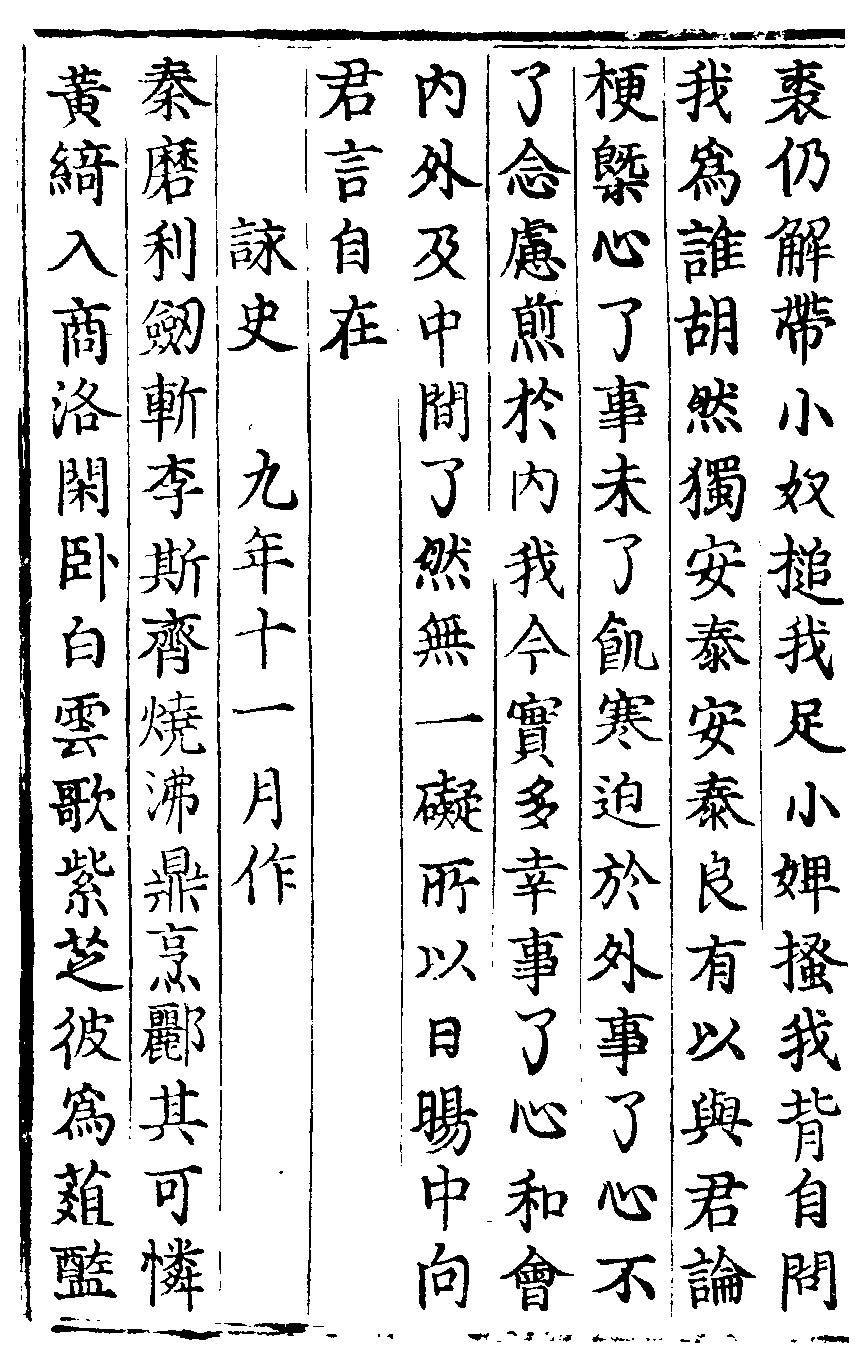 裘仍解帶小奴搥我足小婢搔我背自問
我爲誰胡然獨安泰安泰良有以與君論
梗槩心了事未了飢寒迫於外事了心不
了念慮煎於内我今實多幸事了心和會
内外及中間了然無一礙所以日陽中向
君言自在
詠史 九年十一月作
秦磨利劔斬李斯齊燒沸鼎烹酈其可憐
黃綺入商洛閑卧白雲歌紫芝彼爲葅醢